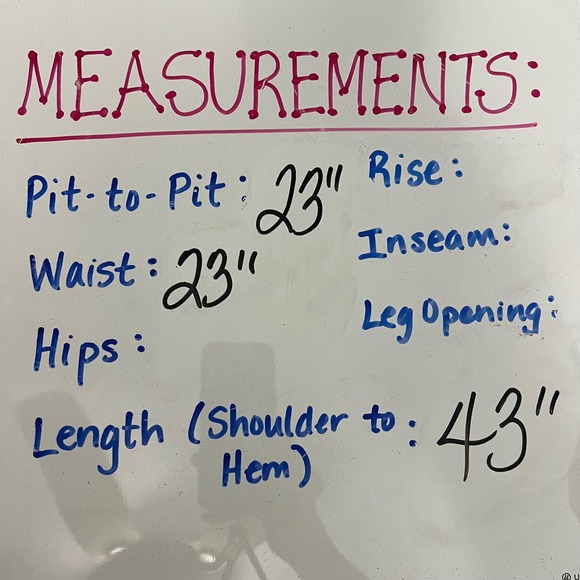 MEASUREMENTS:
Pit-to-Pit: 23"
Waist: 23"
Hips:
Length (Shoulder to: 43"
Hem)
Rise:
Inseam:
Leg Opening: